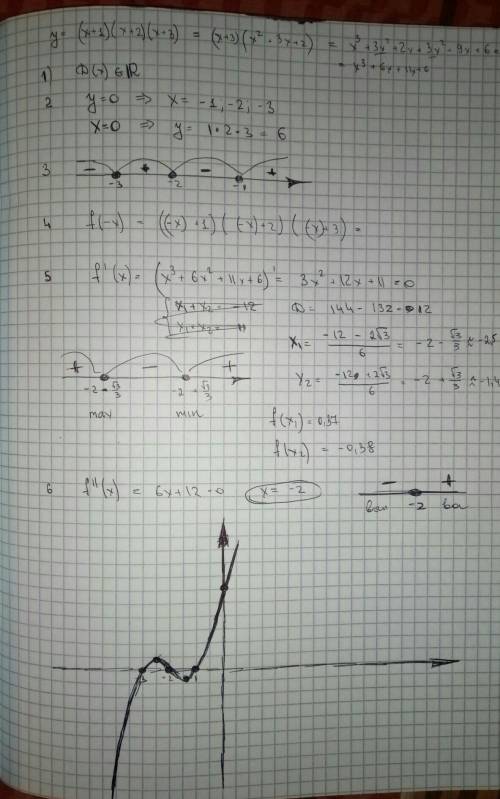 y= (x+1)(x+2)(x+3) = (x+3)(x² + 3x+2) = x³+3x²+2x+3x²+9x+6=
= x³+6x²+11x+6
1) D(y) ∈ R
2 y=0 ⇒ x= -1, -2, -3
x=0 ⇒ y= 1·2·3 = 6
3 - + - +
-3 -2 -1
4 f(-x) = ((-x)+1)((-x)+2)((-x)+3) =
5 f'(x)= (x³+6x²+11x+6)' = 3x²+12x+11=0
D= 144-132=12
x₁= (-12 - 2√3)/6 = -2 - √3/3 ≈ -2,5
+ - +
x₂= (-12 + 2√3)/6 = -2 + √3/3 ≈ -1,4
-2 - √3/3 -2 + √3/3
max min
f(x₁)=0,37
f(x₂) = -0,38
6 f''(x) = 6x+12=0 x= -2
- +
-2
-3 -2 -1